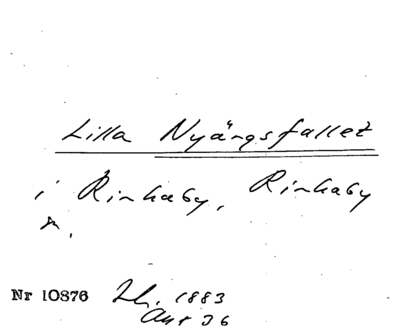 Lilla Nyängsfallet
i Rinkaby, Rinkaby
Nr 10876 1883
36